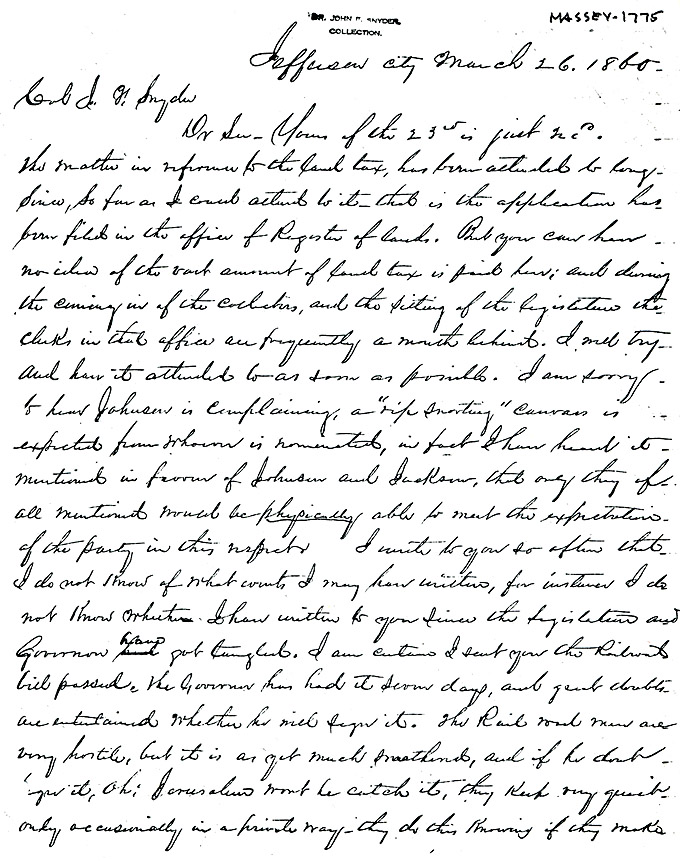 DR. JOHN F. SNYDER
COLLECTION.
MASSEY-1775
Jefferson city March 26. 1860-
Col J. F. Snyder
Dr Sir- Yours of the 23rd is just recd.
The matter in reference to the land tax, has been attended to long-
since, so far as I could attend to it- that is the application has
been filed in the office of Register of lands. But you can have
no idea of the vast amount of land tax is paid here; and during
the coming in of the collectors, and the sitting of the legislature the
clerks in that office are frequently a month behind. I will try-
and have it attended to as soon as possible. I am sorry
to hear Johnson is complaining, a "rip snorting" canvass is
expected from whoever is nominated, in fact I have heard it-
mentioned in favour of Johnson and Jackson, that only they of
all mentioned would be physically able to meet the expectation
of the party in this respect. I write to you so often that
I do not know of what counts I may have written, for instance I do
not know whether I have written to you since the legislature and
Governor have got tangled. I am certain I sent you the Railroad
bill passed. The Governor has had it seven days, and great doubts
are entertained whether he will sign it. The Rail road men are
very hostile, but it is as yet much smothered, and if he dont-
sign it, Oh; Jerusalem wont he catch it, they keep very quiet-
only occasionally in a private way- they do this knowing if they make